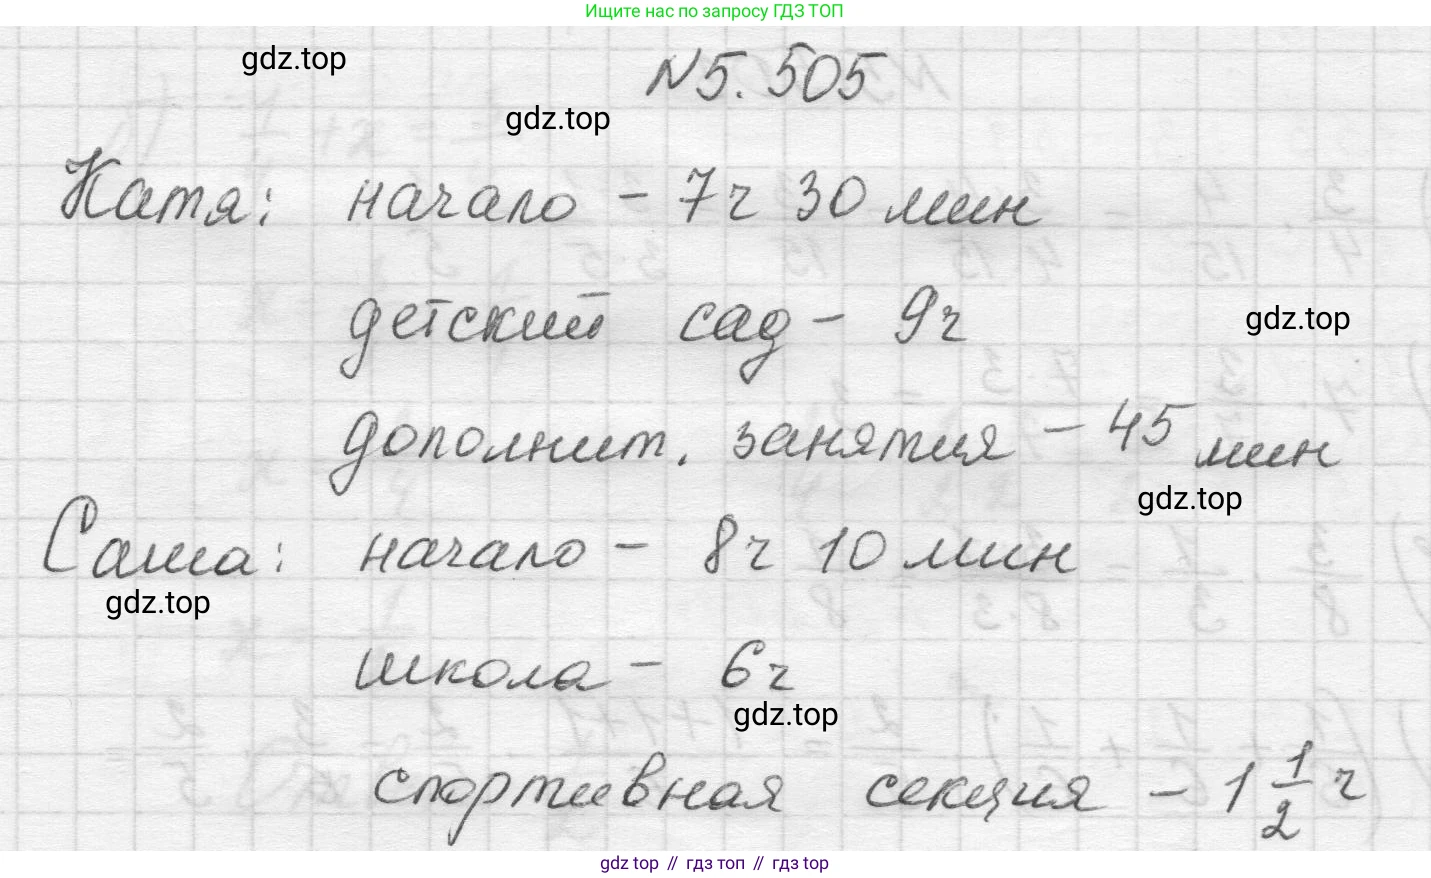 Ищите нас по запросу ГДЗ ТОП
gdz.top
N5.505
gdz.top
Катя: начало - 7ч 30 мин
детский сад - 9ч
gdz.top
дополнит. занятия - 45 мин
gdz.top
Саша: начало - 8ч 10 мин
gdz.top
школа - 6ч
gdz.top
спортивная секция - 1 1/2 ч
gdz top // гдз топ // gdz top